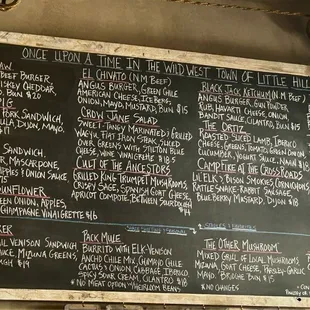 ONCE UPON A TIME IN THE WILD WEST TOWN OF LITTLE HILLS
BEEF BURGER,
WHISKEY CHEDDAR,
BUN $20
PORK SANDWICH,
DIJON, MAYO
SANDWICH,
MASCARPONE,
APPLES & ONION SAUCE
SUNFLOWER
GREEN ONION, APPLES,
CHAMPAGNE VINAIGRETTE $16
VENISON SANDWICH
SAUCE, MIZUNA GREENS,
$14
EL CHIVATO (N.M BEEF)
ANGUS BURGER, GREEN CHILE
AMERICAN CHEESE, ICEBERG,
ONION, MAYO, MUSTARD, BUN $15
CROW JANE SALAD
SWEET-TANGY MARINATED & GRILLED
WAGYU FLAT IRON STEAK, SLICED
OVER GREENS WITH STILTON BLUE
CHEESE, WINE VINAIGRETTE $18.5
CULT OF THE ANCESTORS
GRILLED KING TRUMPET MUSHROOMS
CRISPY SAGE, SPANISH GOAT GHEESE,
APRICOT COMPOTE, BETWEEN SOURDOUGH
PACK MULE
BURRITO WITH ELK-VENISON
ANCHO CHILE MIX, CHIMAYO CHILE
CACTUS & ONION CABBAGE, IBERICO
SPICY SOUR CREAM, CILANTRO $18
NO MEAT OPTION W/HEIRLOOM BEANS
BLACK JACK KETCHUM (N.M BEEF)
ANGUS BURGER, GUN POWDER
RUB, HAVARTI CHEESE, ONION
BANDIT SAUCE, CILANTRO, BUN $15
THE ORTIZ
ROASTED SLICED LAMB, IBERICO
CHEESE, GREENS, TOMATO, GREEN ONION,
CUCUMBER, YOGURT SAUCE, NAAN $18
CAMPFIRE AT THE CROSSROADS
LI'L ELK & BISON SMOKIES, CORNICHONS
RATTLE SNAKE-RABBIT SAUSAGE,
BLUEBERRY MUSTARD, DIJON $18
THE OTHER MUSHROOM
MIXED GRILL OF LOCAL MUSHROOMS
MIZUNA, GOAT CHEESE, PARSLEY-GARLIC
MAYO, BRIOCHE BUN $15
NO CHANGES